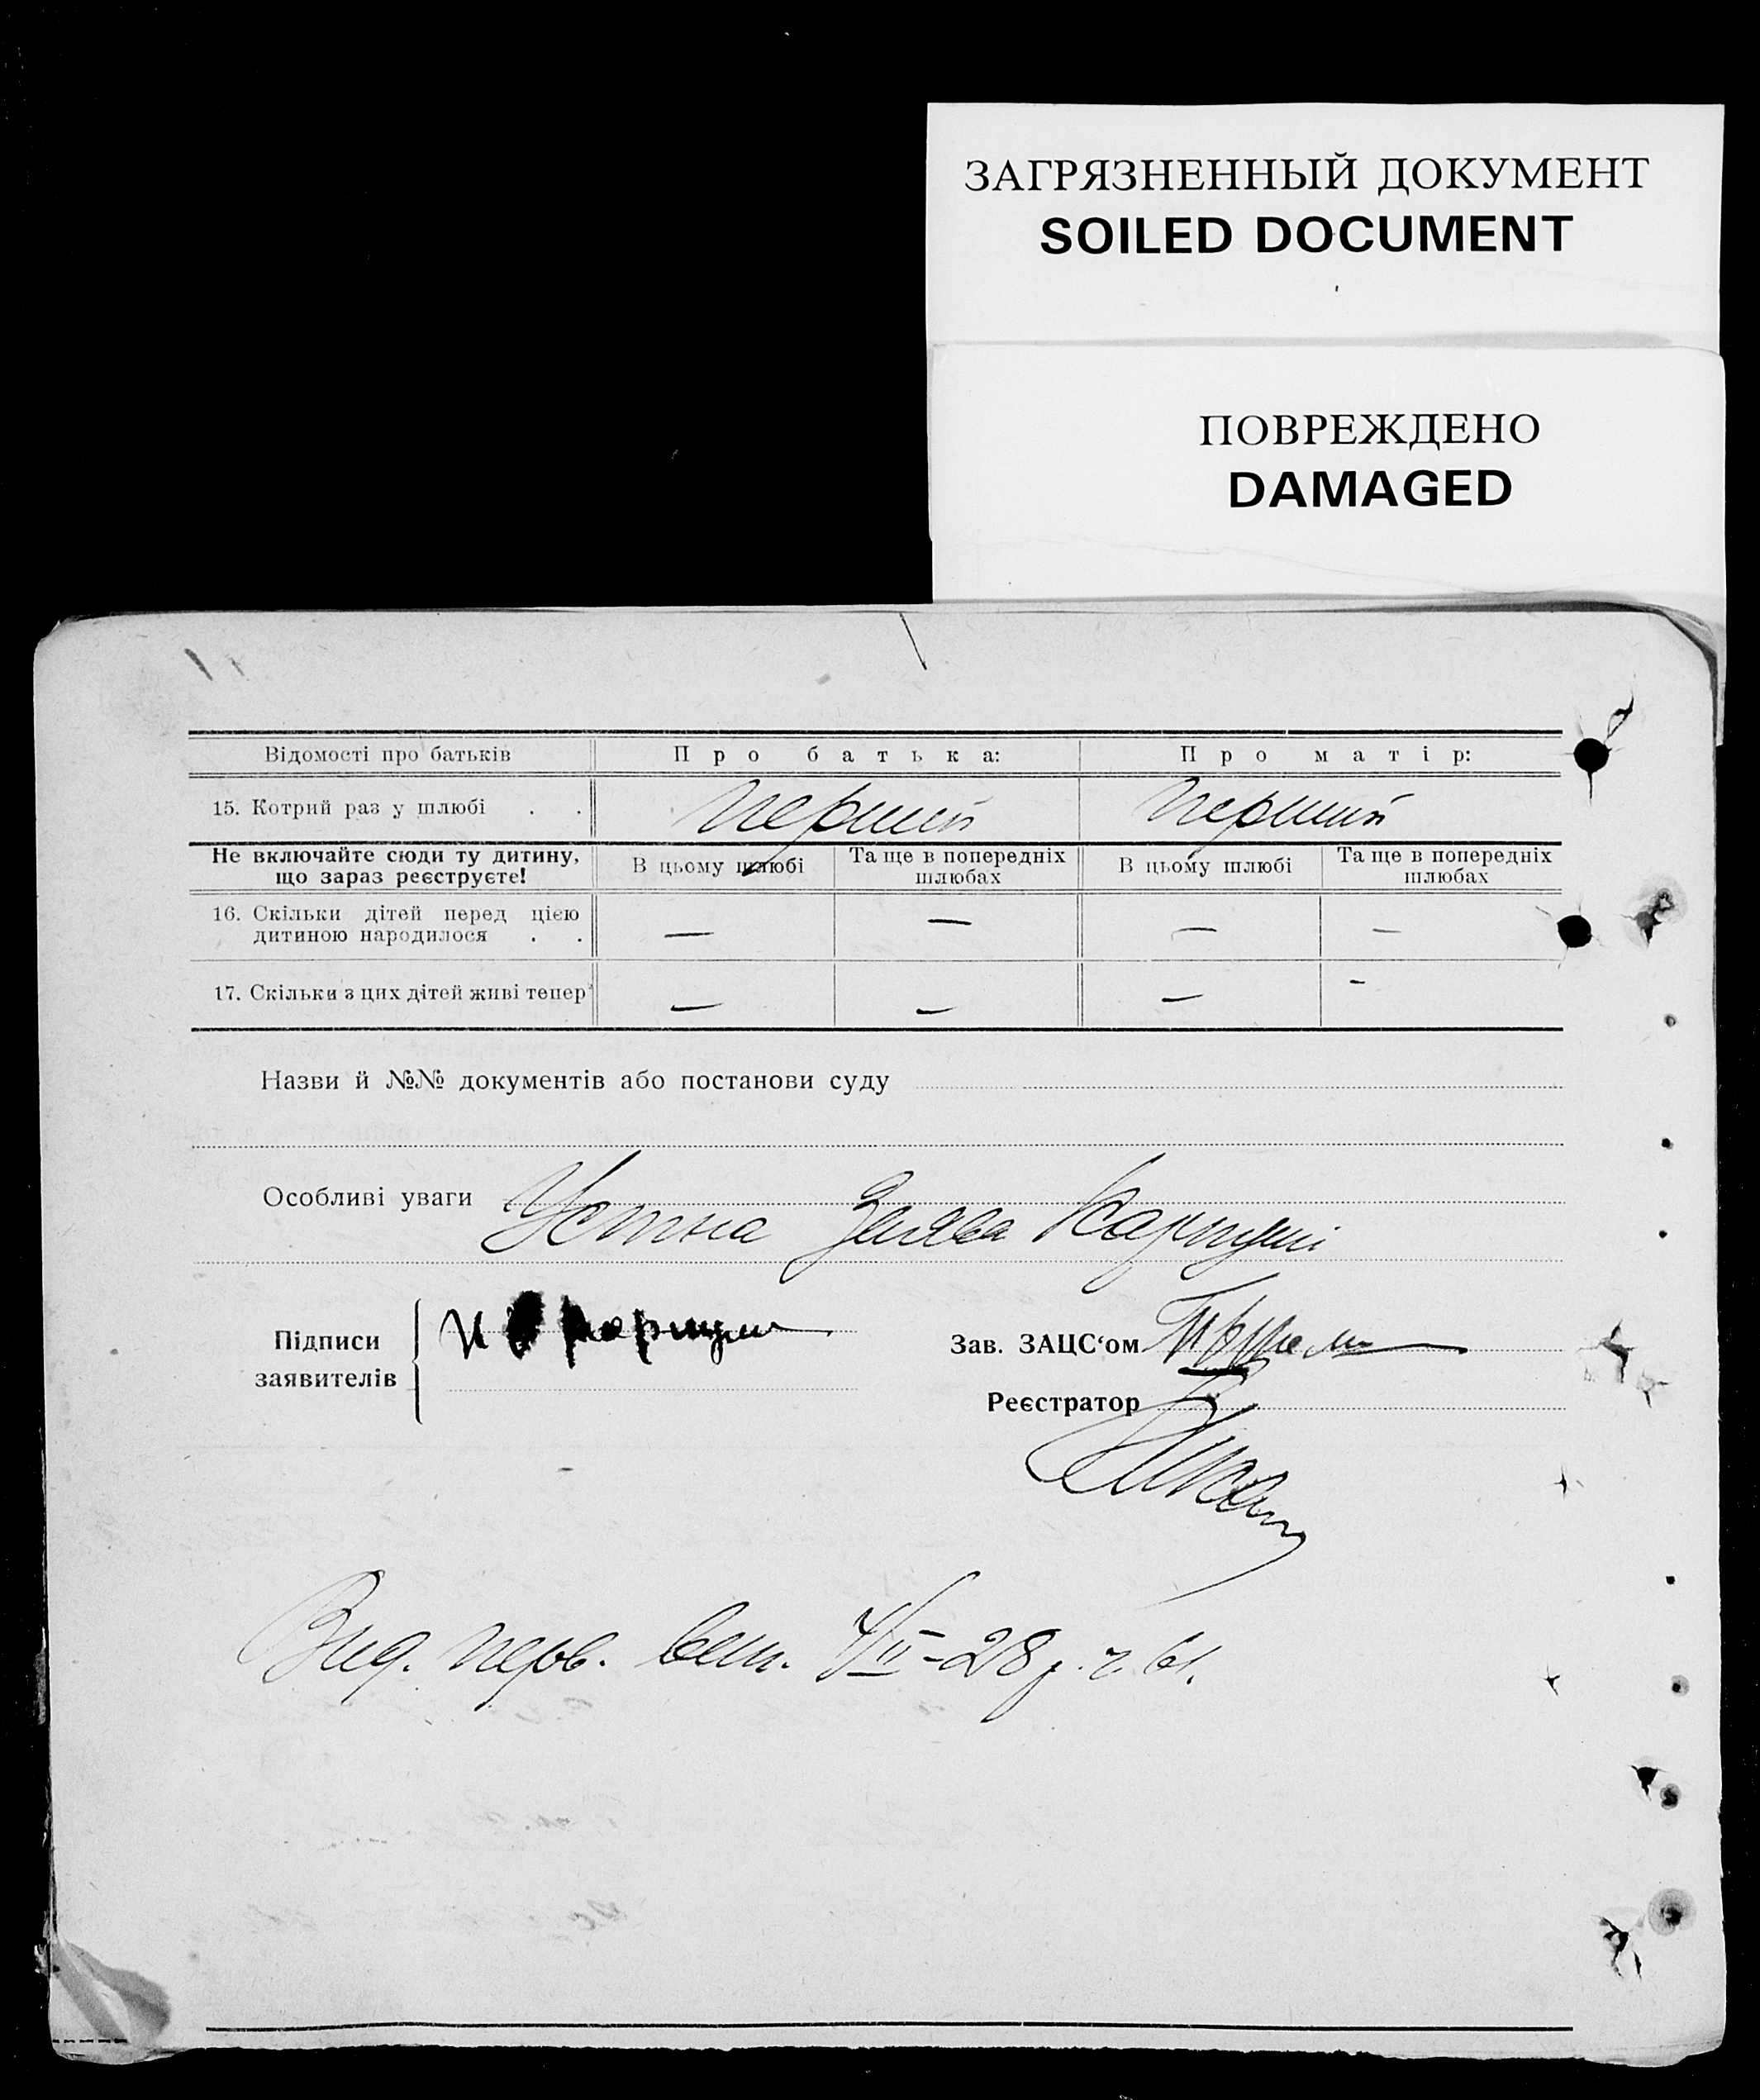 ЗАГРЯЗНЕННЫЙ ДОКУМЕНТ
SOILED DOCUMENT
ПОВРЕЖДЕНО
DAMAGED
Відомості про батьків Про батька: Про матір:
15. Котрий раз у шлюбі . . перший перший
Не включайте сюди ту дитину, що зараз реєструєте! В цьому шлюбі Та ще в попередніх шлюбах В цьому шлюбі Та ще в попередніх шлюбах
16. Скільки дітей перед цією дитиною народилося . . — — — —
17. Скільки з цих дітей живі тепер — — — -
Назви й №№ документів або постанови суду
Особливі уваги Устна Заява
Підписи заявителів
Зав. ЗАЦС‘ом
Реєстратор
Вид. перв. вип. 4/II-28 р. ч. 61.